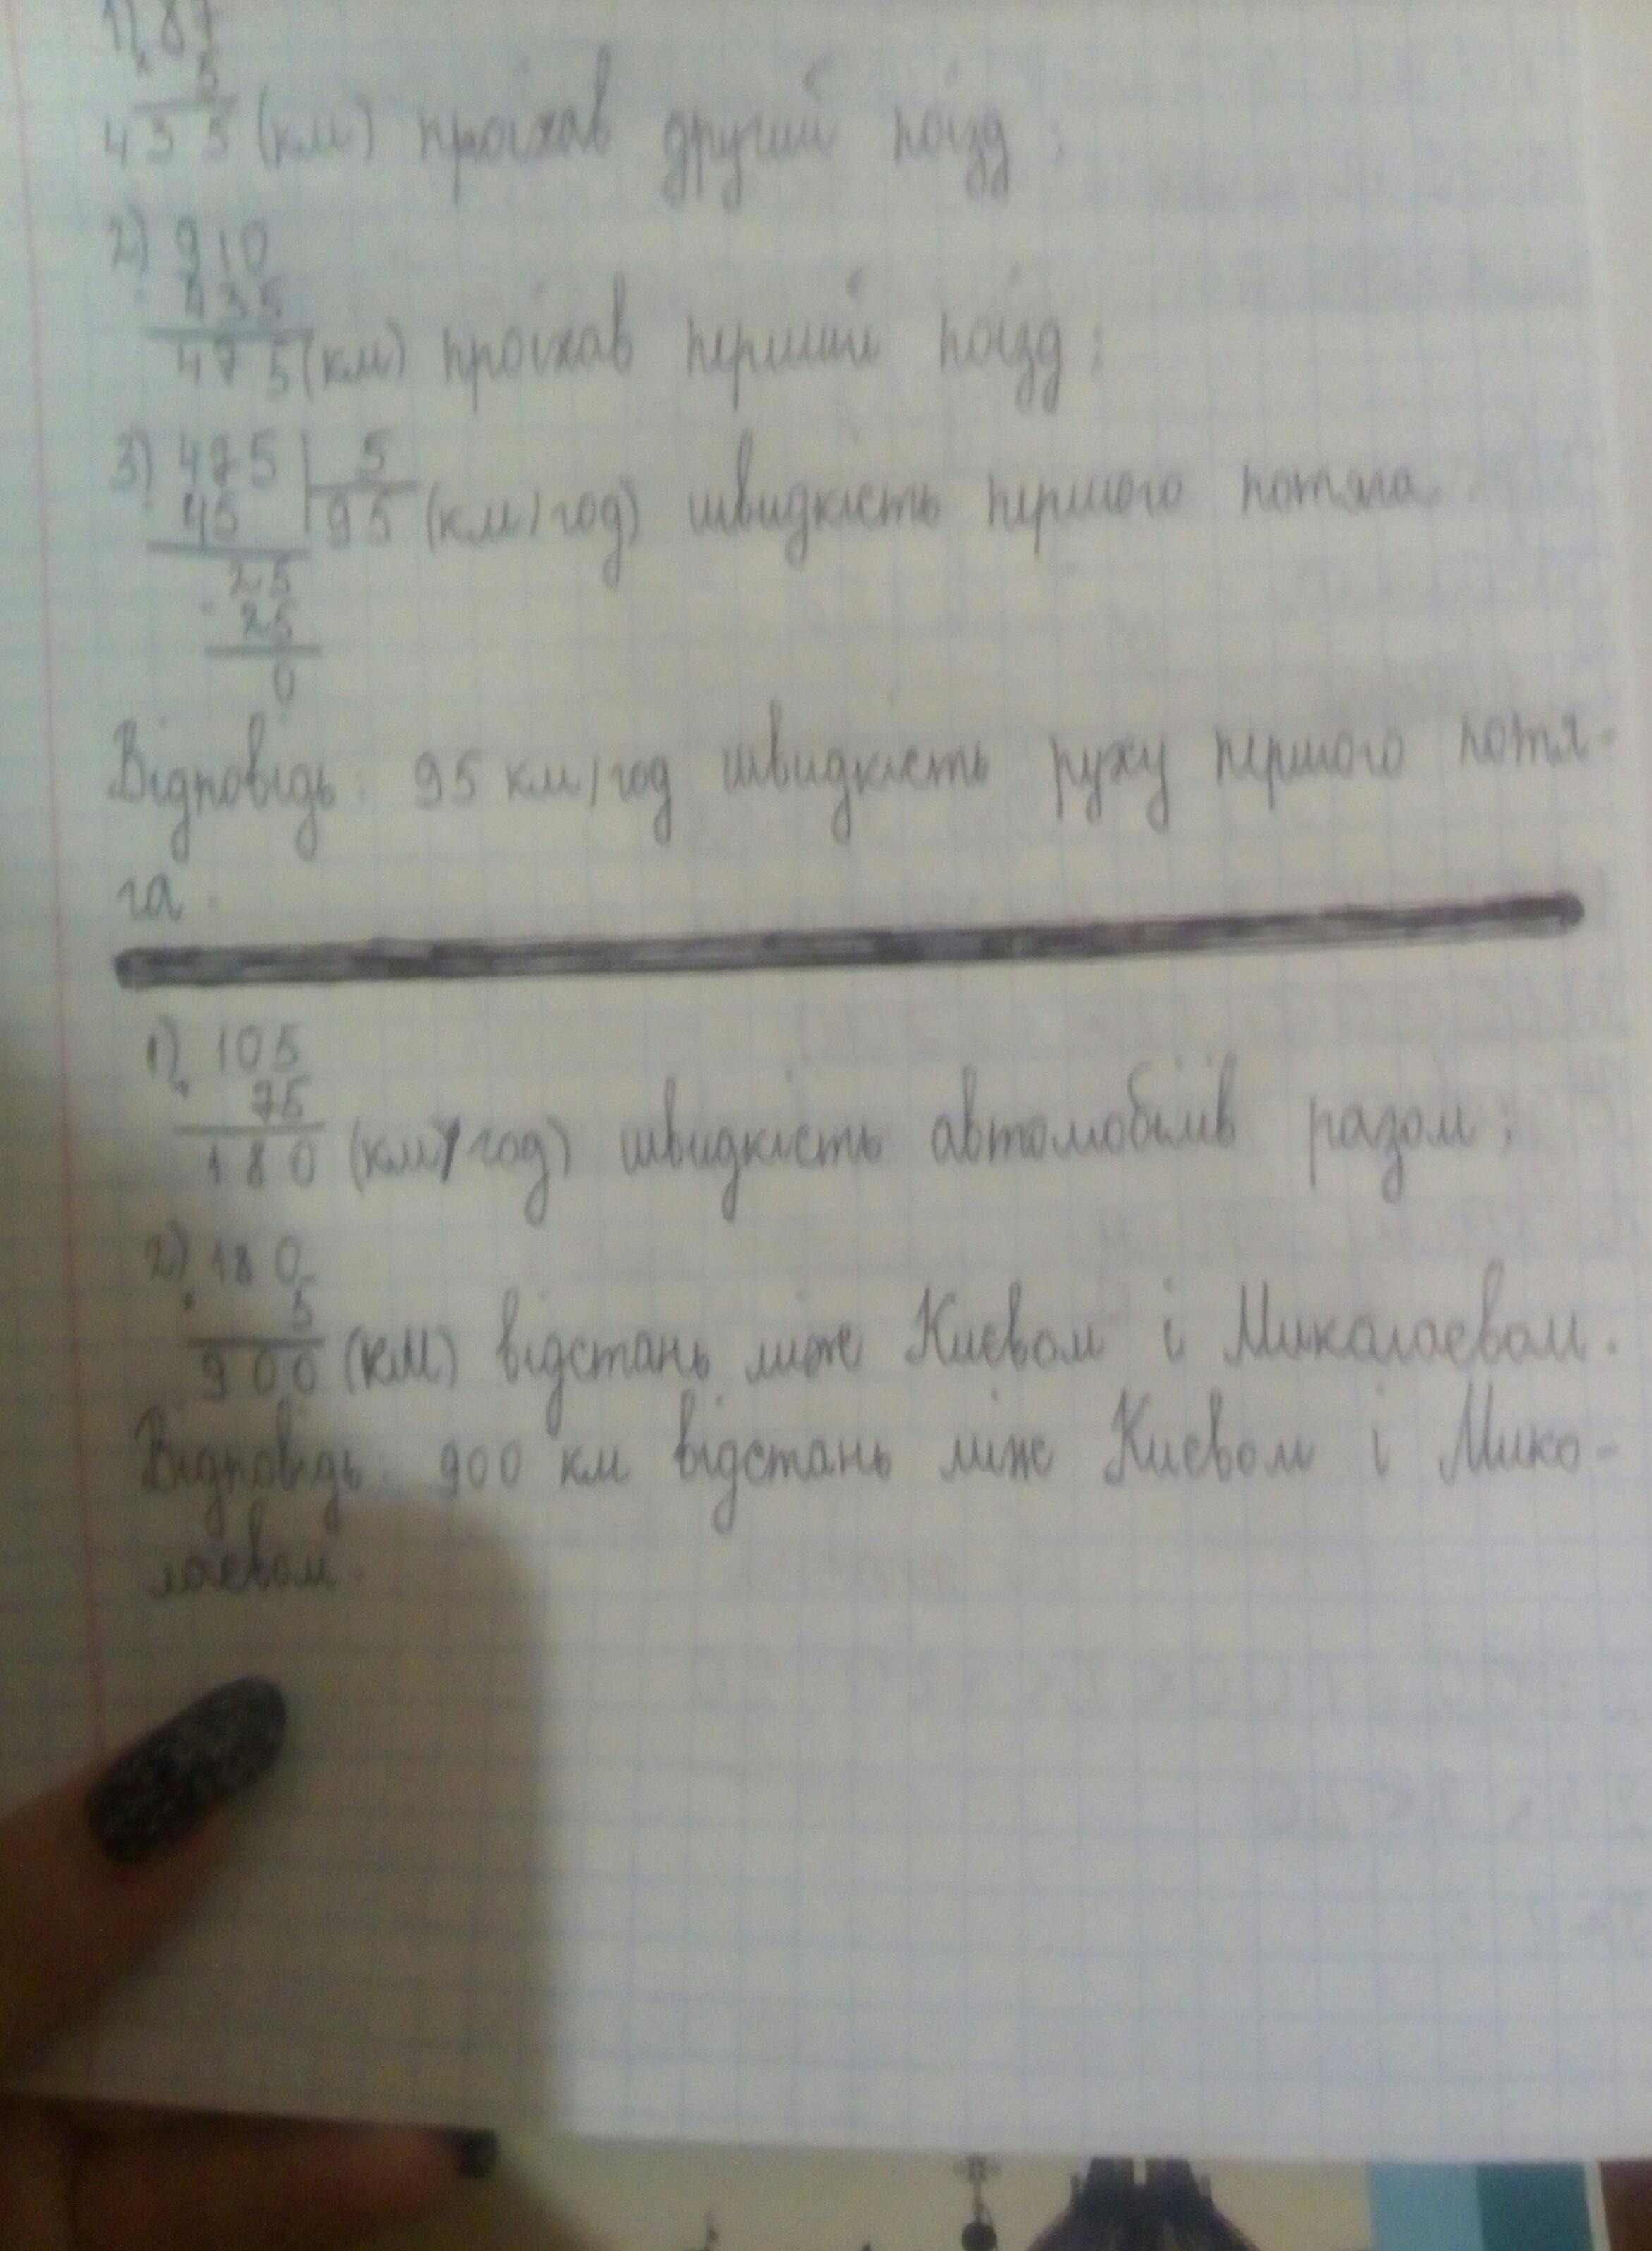 1) 87
× 5
435 (км) проїхав другий поїзд;
2) 910
- 435
475 (км) проїхав перший поїзд;
3) 475 | 5
- 45 | 95 (км/год) швидкість першого потяга.
25
- 25
0
Відповідь: 95 км/год швидкість руху першого потя-
га.
1) 105
+ 75
180 (км/год) швидкість автомобілів разом;
2) 180
× 5
900 (км) відстань між Києвом і Миколаєвом.
Відповідь: 900 км відстань між Києвом і Мико-
лаєвом.